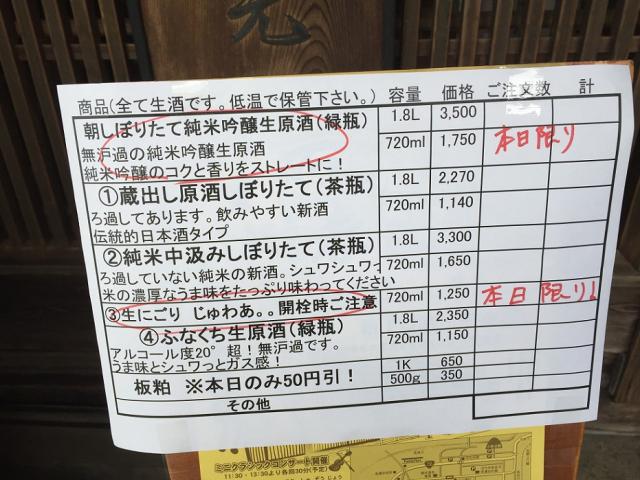 元
商品(全て生酒です。低温で保管下さい。) 容量 価格 ご注文数 計
朝しぼりたて純米吟醸生原酒(緑瓶) 1.8L 3,500
無沪過の純米吟醸生原酒 720ml 1,750 本日限り
純米吟醸のコクと香りをストレートに!
①蔵出し原酒しぼりたて(茶瓶) 1.8L 2,270
ろ過してあります。飲みやすい新酒 720ml 1,140
伝統的日本酒タイプ
②純米中汲みしぼりたて(茶瓶) 1.8L 3,300
ろ過していない純米の新酒。シュワシュワっ 720ml 1,650
米の濃厚なうま味をたっぷり味わってください
③生にごり じゅわあ。。開栓時ご注意 720ml 1,250 本日限り!
④ふなくち生原酒(緑瓶) 1.8L 2,350
アルコール度20°超!無沪過です。 720ml 1,150
うま味とシュワっとガス感!
板粕 ※本日のみ50円引! 1K 650
500g 350
その他
ミニクラシックコンサート開催
11:30・13:30より各回30分(予定)